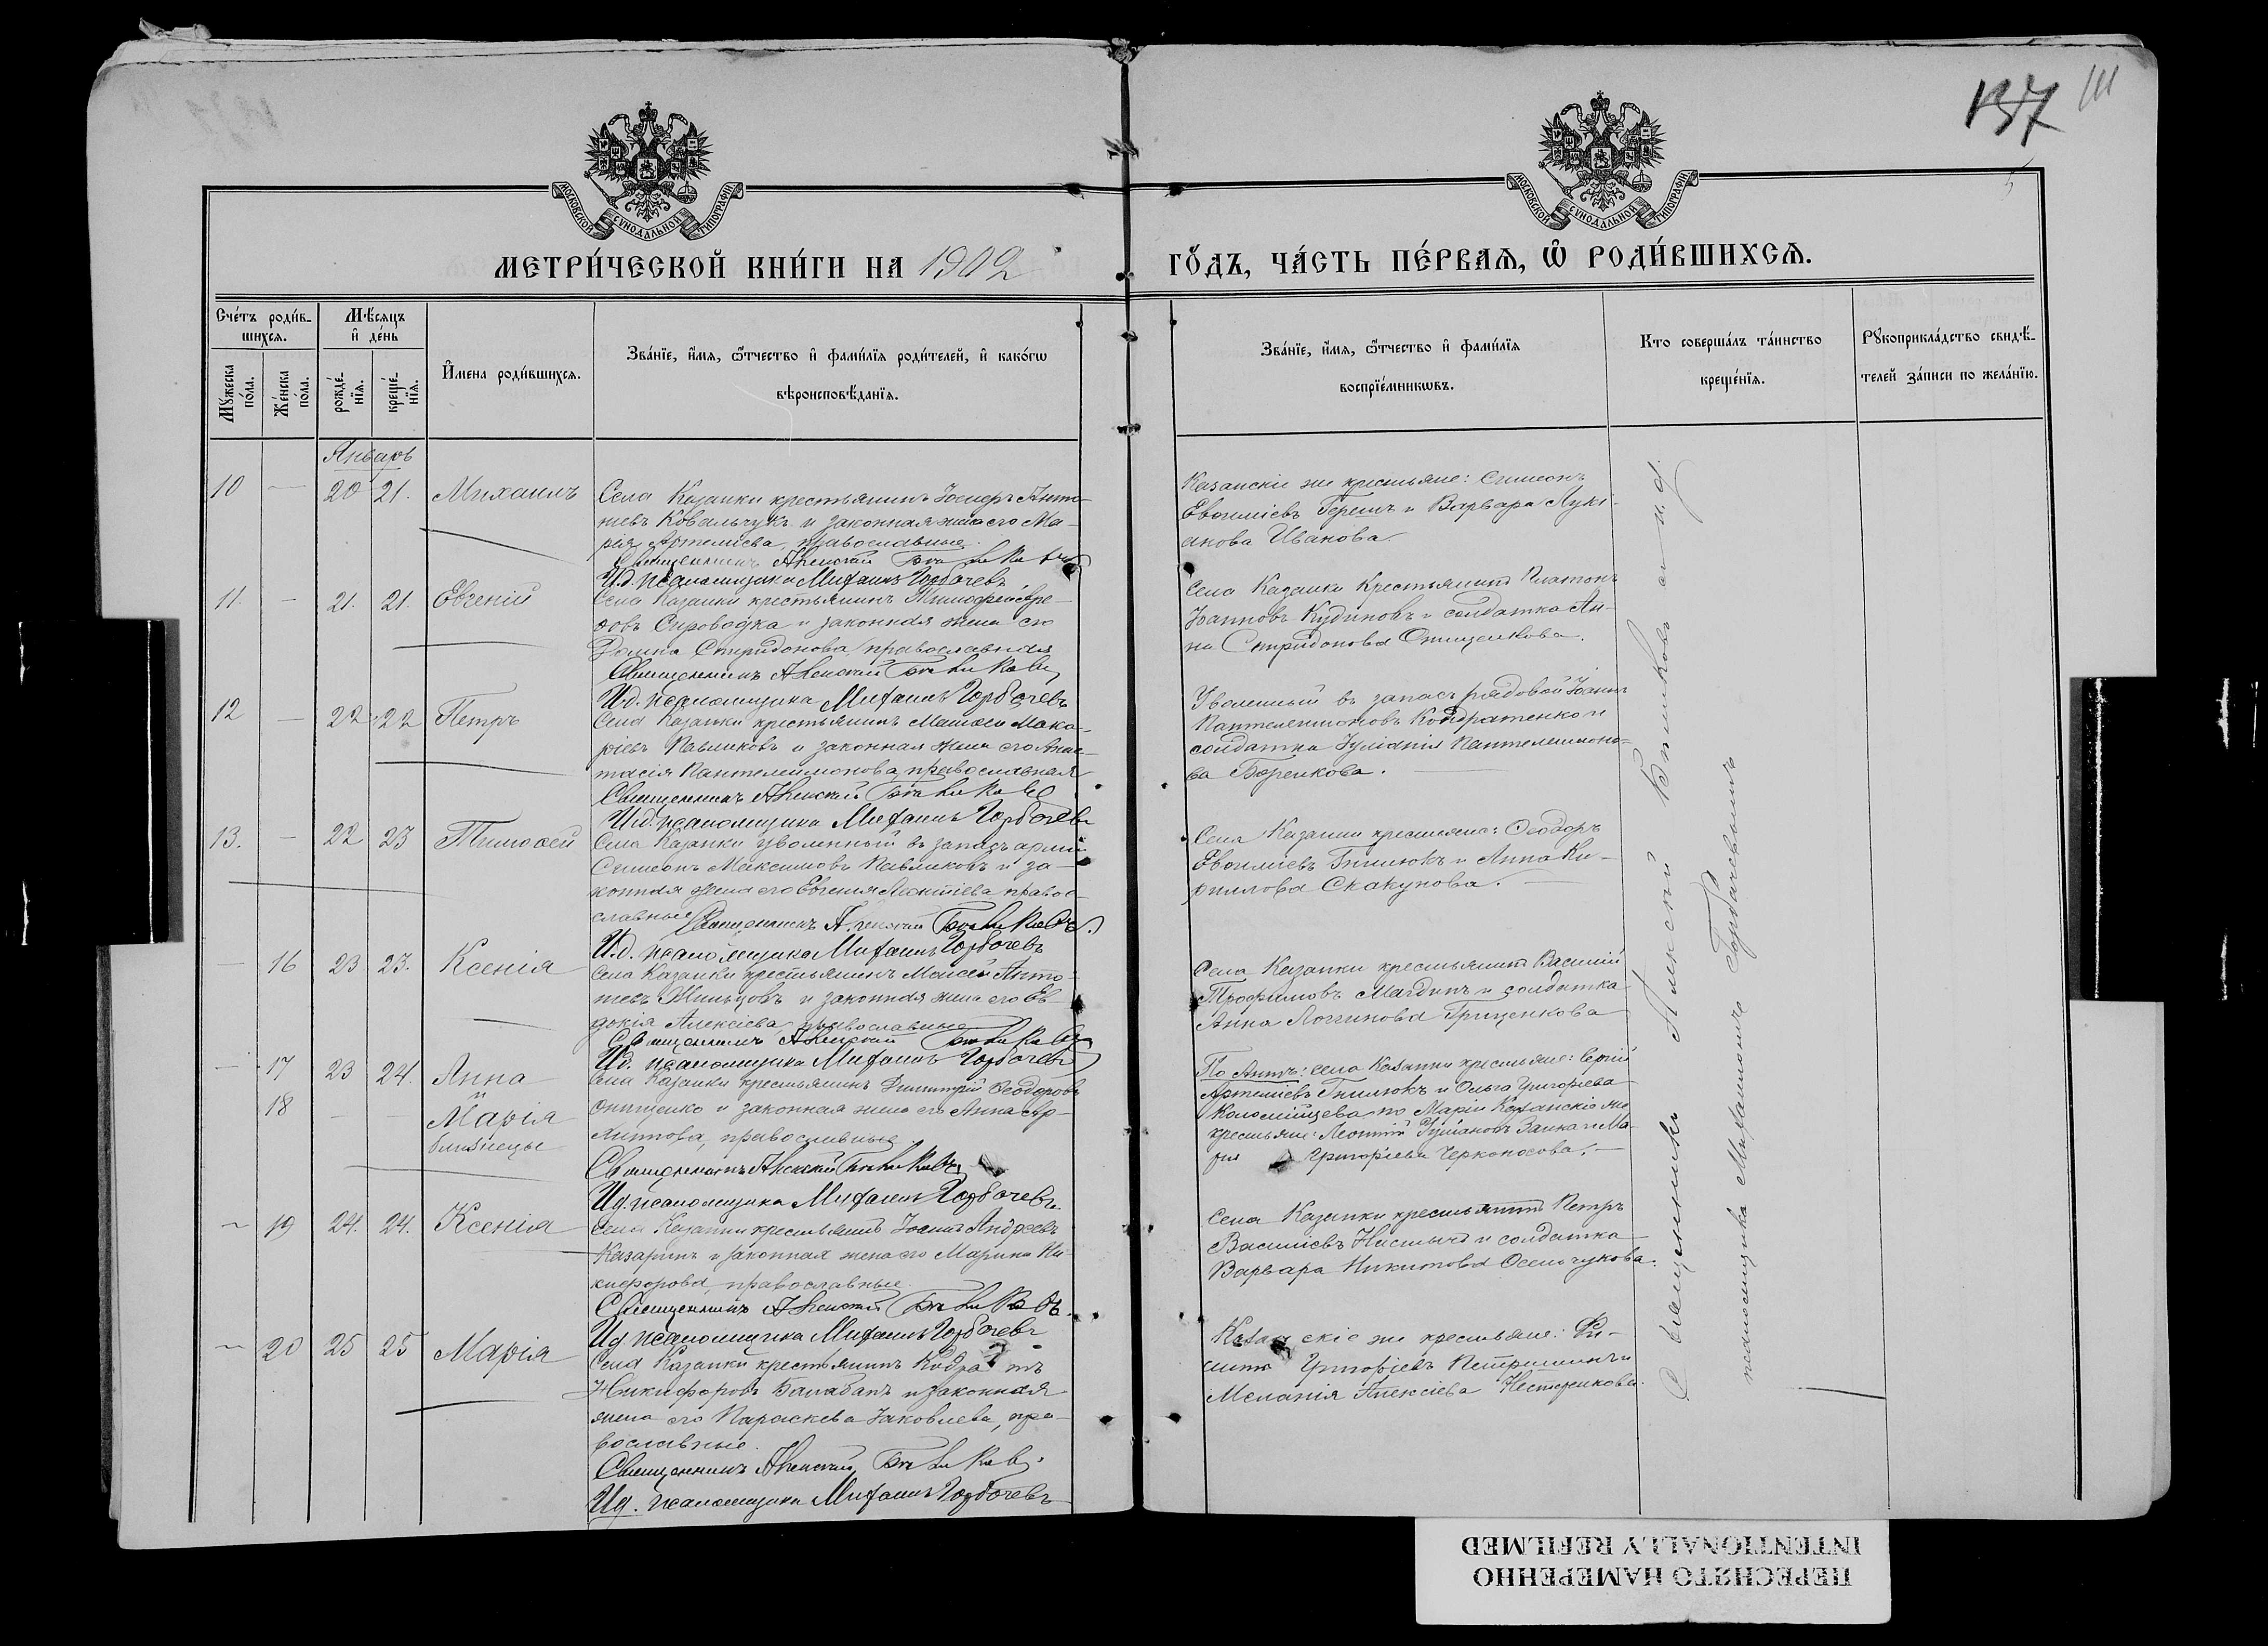 137 111
5
МОСКОВСКОЙ СѴНОДАЛЬНОЙ ТИПОГРАФІИ
МОСКОВСКОЙ СѴНОДАЛЬНОЙ ТИПОГРАФІИ
МЕТРИ́ЧЕСКОЙ КНИ́ГИ НА 1902
ГО́ДЪ, ЧА́СТЬ ПЕ́РВАѦ, Ѡ҆ РОДИ́ВШИХСѦ.
Сче́тъ роди́в-
шихсѧ.
Мꙋ́жеска по́ла.
Же́нска по́ла.
Мѣ́сѧцъ
и҆ де́нь
рожде́-нїѧ.
креще́-нїѧ.
И҆мена роди́вшихсѧ.
Зва́нїе, и҆́мѧ, ѻ҆́тчество и҆ фами́лїѧ роди́телей, и҆ како́гѡ
вѣроисповѣ́данїѧ.
Зва́нїе, и҆́мѧ, ѻ҆́тчество и҆ фами́лїѧ
воспрїе́мникѡвъ.
Кто соверша́лъ та́инство
креще́нїѧ.
Рꙋкоприкла́дство свидѣ́-
телей за́писи по жела́нїю.
Январь
10 — 20 21. Михаилъ
Села Казанки крестьянинъ Анто-
ніевъ Ковальчукъ и законная жена его Ма-
рія Артеміева, православные.
Священникъ Алексій
И.д. псаломщика Михаилъ Горбачевъ
Казанскіе же крестьяне: Симеонъ
Евѳиміевъ и Варвара Лукі-
анова Иванова
11. — 21. 21. Евгеній
Села Казанки крестьянинъ Тимоѳей
Сыроводка и законная жена его
Домна Спиридонова, православная
Священникъ Алексій
И.д. псаломщика Михаилъ Горбачевъ
Села Казанки Крестьянинъ Платонъ
Іоанновъ Кудиновъ и солдатка Ан-
на Спиридонова Онищенкова.
12 — 22 22 Петръ
Села Казанки крестьянинъ Мака-
ріевъ Павликовъ и законная жена его Анас-
тасія Пантелеимонова, православная
Священникъ Алексій
И.д. псаломщика Михаилъ Горбачевъ
Уволенный въ запасъ рядовой Іоаннъ
Пантелеимоновъ Кондратенко и
солдатка Іуліанія Пантелеимоно-
ва Боренкова.
13. — 22 23 Тимоѳей
Села Казанки уволенный въ запасъ арміи
Симеонъ Максимовъ Павликовъ и за-
конная жена его Евгенія Леонтіева право-
славные Священникъ Алексій
И.д. псаломщика Михаилъ Горбачевъ
Села Казанки крестьяне: Ѳеодоръ
Евѳиміевъ Гнилюкъ и Анна Ки-
риллова Скакунова.
— 16 23 23. Ксенія
Села Казанки крестьянинъ Моисей Анто-
ніевъ Жильцовъ и законная жена его Ев-
докія Алексіева, православные
Священникъ Алексій
И.д. псаломщика Михаилъ Горбачевъ
Села Казанки крестьянинъ Василій
Трофимовъ и солдатка
Анна Логгинова Гриценкова
— 17 23 24. Анна
и
18 — — Марія
близнецы
Села Казанки крестьянинъ Димитрій Ѳеодоровъ
Онищенко и законная жена его Анна
православные
Священникъ Алексій
И.д. псаломщика Михаилъ Горбачевъ
По Аннѣ: села Казанки крестьяне: Сергій
Артеміевъ Гнилюкъ и Ольга Григорьева
Коломійцева по Маріи Казанскіе же
крестьяне: Леонтій Заика и Ма-
рія Григорьева Черконосова.
— 19 24. 24. Ксенія
Села Казанки крестьянинъ Іоаннъ Андреевъ
Казаринъ и законная жена его Марина Ни-
кифорова, православные.
Священникъ Алексій
И.д. псаломщика Михаилъ Горбачевъ
Села Казанки крестьянинъ Петръ
Василіевъ и солдатка
Варвара Никитова
— 20 25 25 Марія
Села Казанки крестьянинъ Кодратъ
Никифоровъ Балабанъ и законная
жена его Параскева Іаковлева, пра-
вославные.
Священникъ Алексій
И.д. псаломщика Михаилъ Горбачевъ
Казанскіе же крестьяне:
Григоріевъ и
Меланія Алексіева Нестеренкова.
Священникъ Алексій съ и.д.
псаломщика Михаиломъ Горбачевымъ
ПЕРЕСНЯТО НАМЕРЕННО
INTENTIONALLY REFILMED